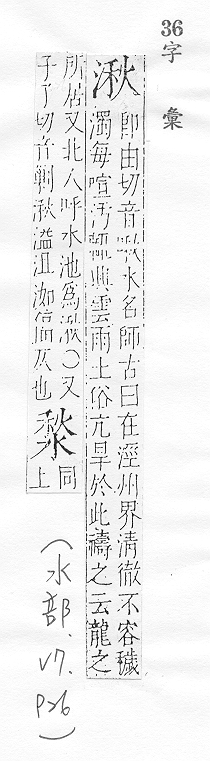 36
字彙
湫 即由切音啾水名師古曰在涇州界清徹不容穢
濁每喧汚輒興雲雨土俗亢旱於此禱之云龍之
所居又北人呼水池爲湫○又
子了切音剿湫溢沮洳 也 同
上
(水部.
P26)